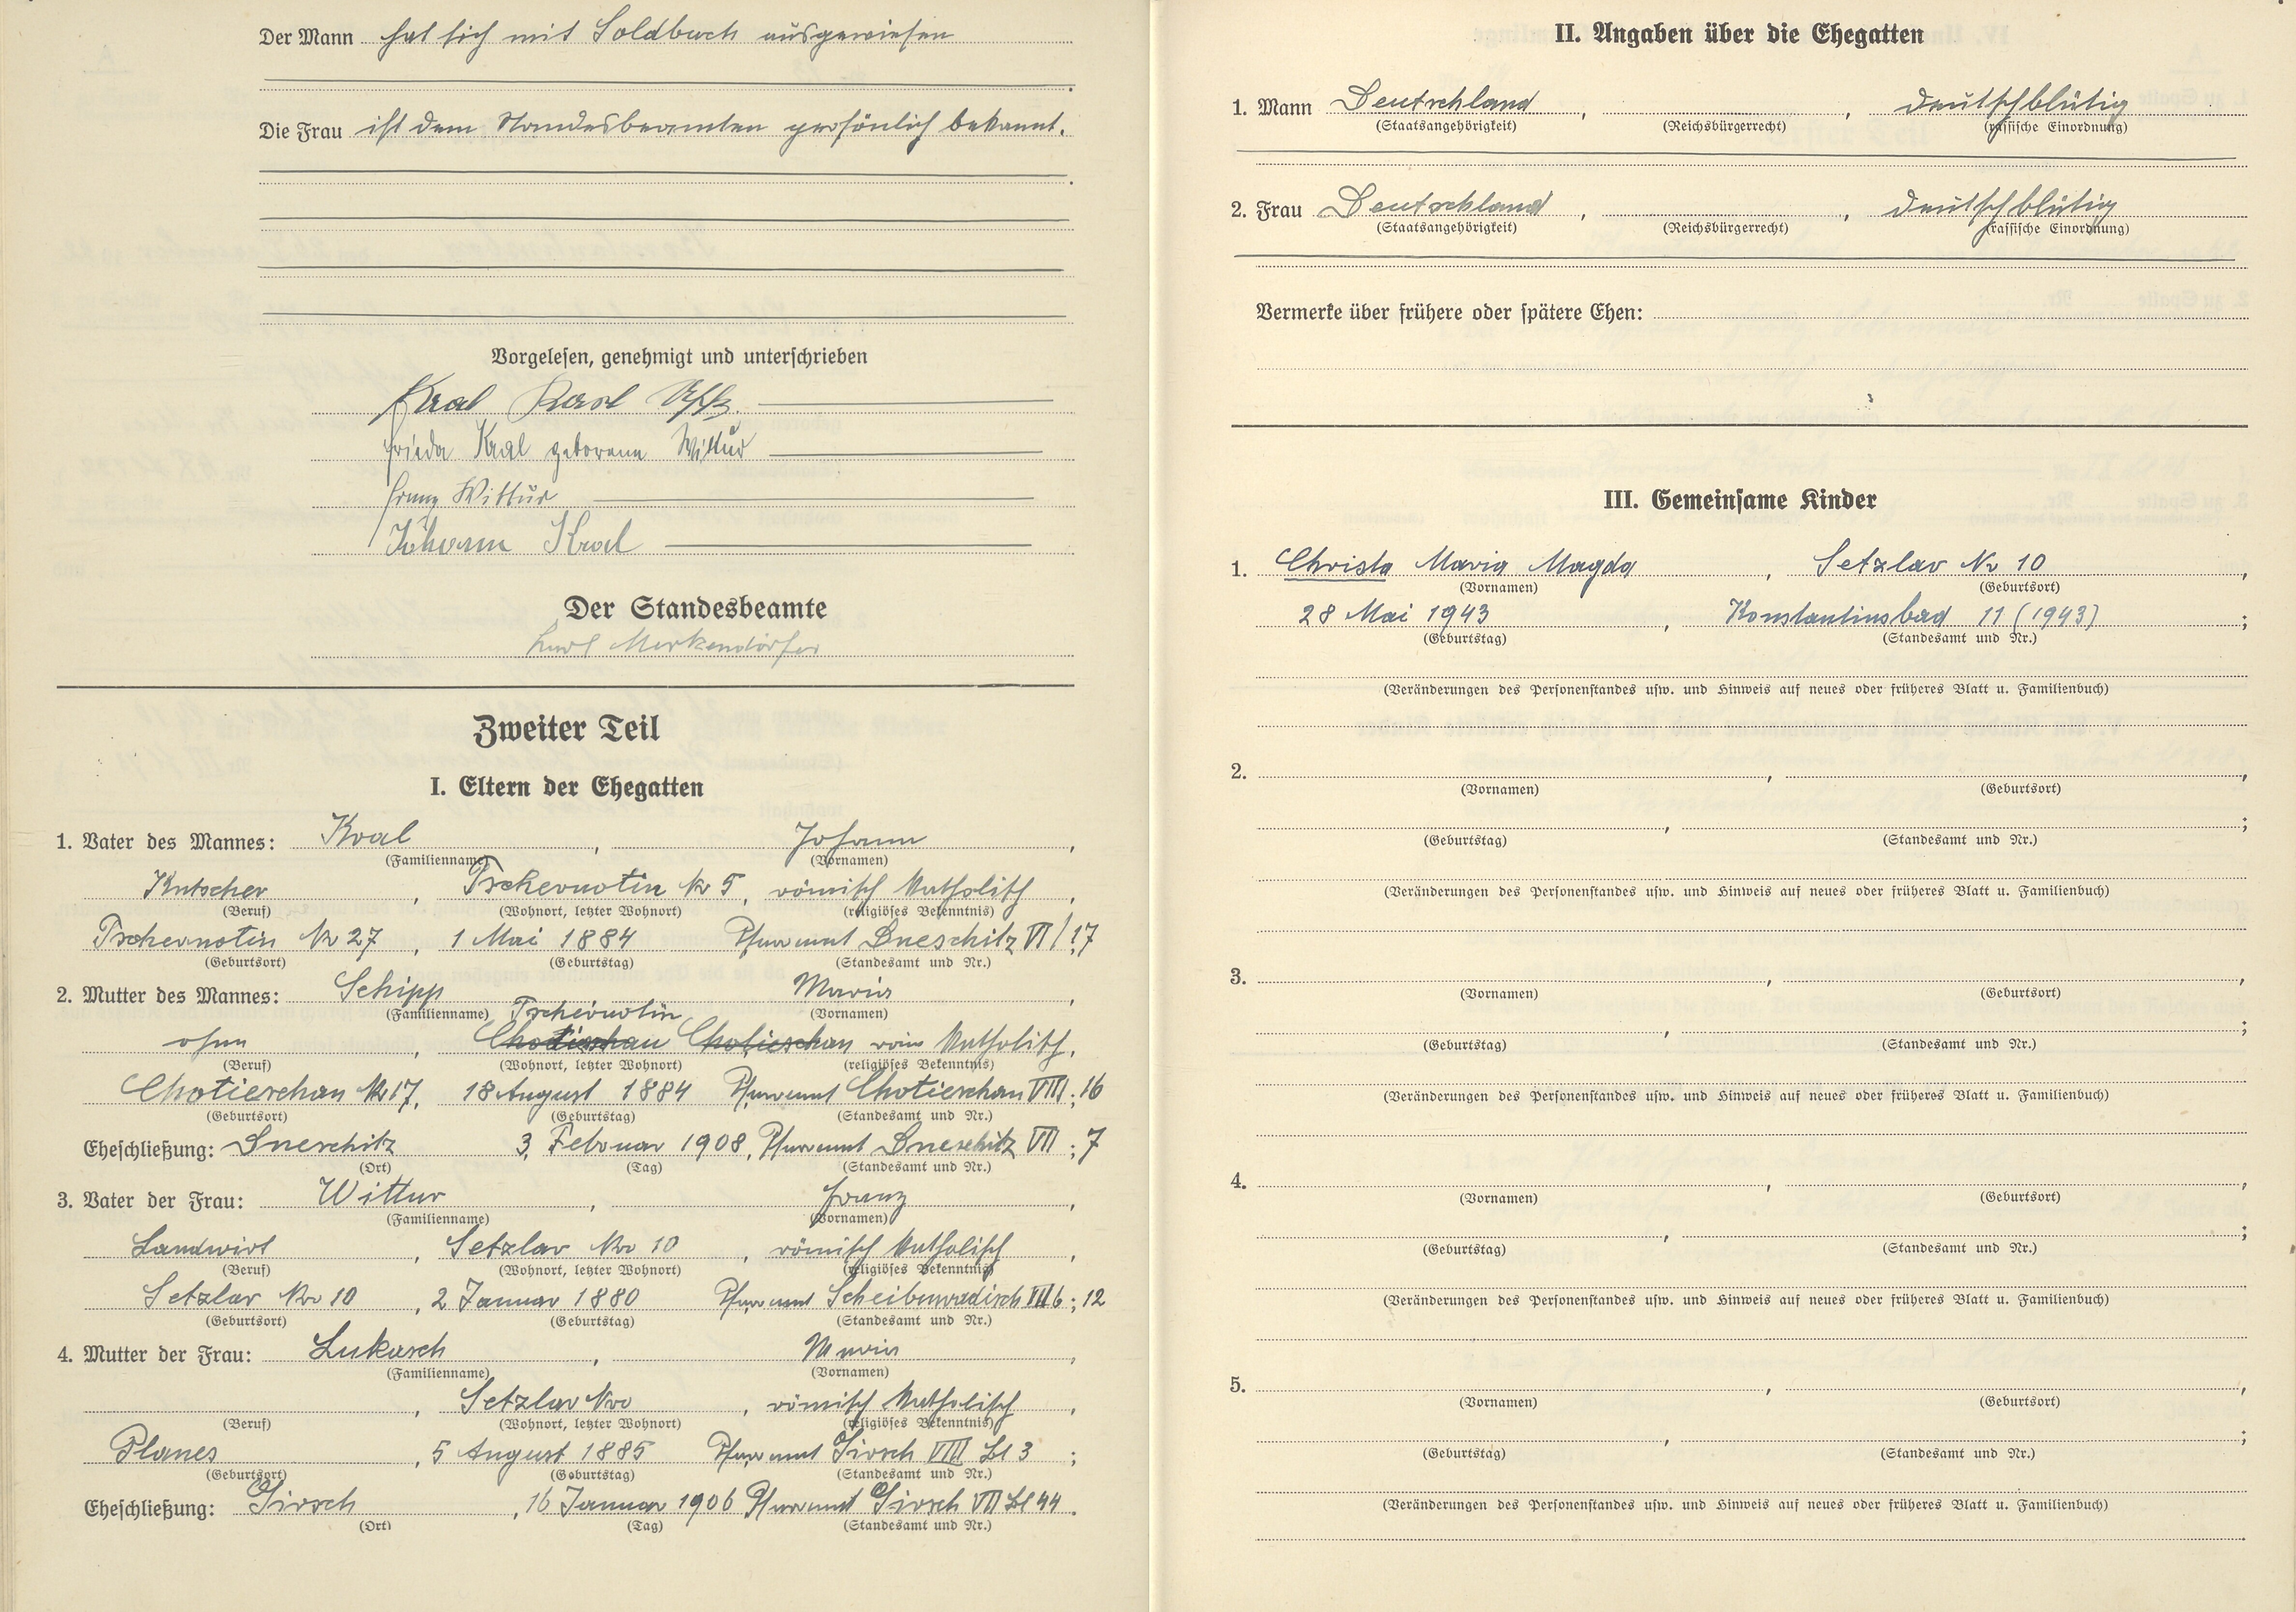 Der Mann hat sich mit Soldbuch ausgewiesen
Die Frau ist dem Standesbeamten persönlich bekannt.
Vorgelesen, genehmigt und unterschrieben
Kral Karl
Frieda Kral geborene Wittur
Franz Wittur
Johann Kral
Der Standesbeamte
Karl Merkendörfer
Zweiter Teil
I. Eltern der Ehegatten
1. Vater des Mannes: Kral , Johann ,
(Familienname) (Vornamen)
Kutscher , Tschernotin Nr 5 , römisch Katholisch ,
(Beruf) (Wohnort, letzter Wohnort) (religiöses Bekenntnis)
Tschernotin Nr 27 , 1 Mai 1884 Pfarramt Dneschitz VI / 17
(Geburtsort) (Geburtstag) (Standesamt und Nr.)
2. Mutter des Mannes: Schipp Maria ,
(Familienname) Tschernotin (Vornamen)
ohne , Chotieschau Chotieschau röm Katholisch,
(Beruf) (Wohnort, letzter Wohnort) (religiöses Bekenntnis)
Chotieschau Nr 17, 18 August 1884 Pfarramt Chotieschau VIII ; 16
(Geburtsort) (Geburtstag) (Standesamt und Nr.)
Eheschließung: Dneschitz 3. Februar 1908, Pfarramt Dneschitz VII ; 7
(Ort) (Tag) (Standesamt und Nr.)
3. Vater der Frau: Wittur , Franz ,
(Familienname) (Vornamen)
Landwirt , Setzlav Nr 10 , römisch Katholisch ,
(Beruf) (Wohnort, letzter Wohnort) (religiöses Bekenntnis)
Setzlav Nr 10 , 2 Januar 1880 Pfarramt Scheibenradisch VII b ; 12
(Geburtsort) (Geburtstag) (Standesamt und Nr.)
4. Mutter der Frau: Lukasch , Maria ,
(Familienname) (Vornamen)
, Setzlav Nro , römisch Katholisch ,
(Beruf) (Wohnort, letzter Wohnort) (religiöses Bekenntnis)
Planes , 5 August 1885 Pfarramt Girsch VIII Bl 3 ;
(Geburtsort) (Geburtstag) (Standesamt und Nr.)
Eheschließung: Girsch , 16 Januar 1906 Pfarramt Girsch VII Bl 44 .
(Ort) (Tag) (Standesamt und Nr.)
II. Angaben über die Ehegatten
1. Mann Deutschland , , deutschblütig
(Staatsangehörigkeit) (Reichsbürgerrecht) (rassische Einordnung)
2. Frau Deutschland , , deutschblütig
(Staatsangehörigkeit) (Reichsbürgerrecht) (rassische Einordnung)
Vermerke über frühere oder spätere Ehen:
III. Gemeinsame Kinder
1. Christa Maria Magda , Setzlav Nr 10 ,
(Vornamen) (Geburtsort)
28 Mai 1943 , Konstantinsbad 11 (1943) ;
(Geburtstag) (Standesamt und Nr.)
(Veränderungen des Personenstandes usw. und Hinweis auf neues oder früheres Blatt u. Familienbuch)
2. , ,
(Vornamen) (Geburtsort)
, ;
(Geburtstag) (Standesamt und Nr.)
(Veränderungen des Personenstandes usw. und Hinweis auf neues oder früheres Blatt u. Familienbuch)
3. , ,
(Vornamen) (Geburtsort)
, ;
(Geburtstag) (Standesamt und Nr.)
(Veränderungen des Personenstandes usw. und Hinweis auf neues oder früheres Blatt u. Familienbuch)
4. , ,
(Vornamen) (Geburtsort)
, ;
(Geburtstag) (Standesamt und Nr.)
(Veränderungen des Personenstandes usw. und Hinweis auf neues oder früheres Blatt u. Familienbuch)
5. , ,
(Vornamen) (Geburtsort)
, ;
(Geburtstag) (Standesamt und Nr.)
(Veränderungen des Personenstandes usw. und Hinweis auf neues oder früheres Blatt u. Familienbuch)